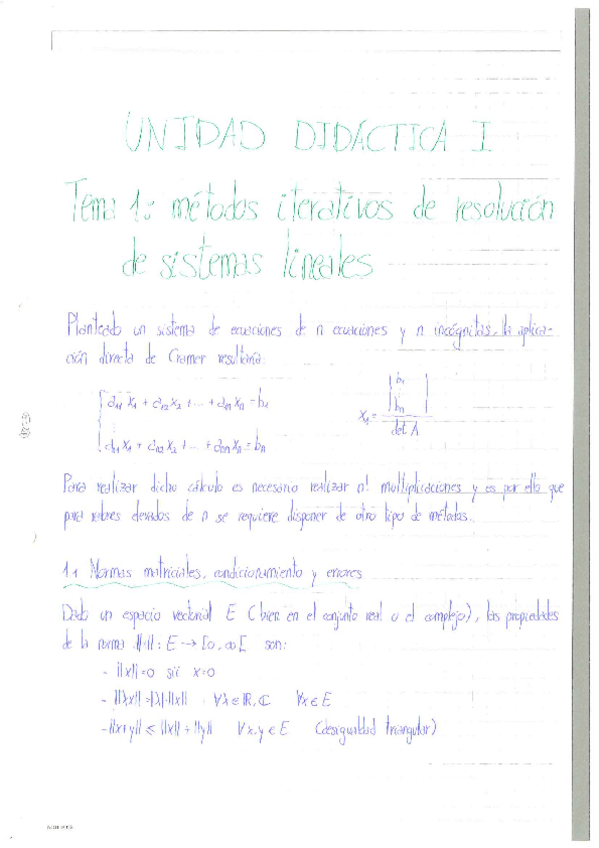 UNIDAD DIDÁCTICA I
Tema 1: métodos iterativos de resolución
de sistemas lineales
Planteado un sistema de ecuaciones de n ecuaciones y n incógnitas, la aplica-
ción directa de Cramer resultaría:
a₁₁x₁ + a₁₂x₂ + ... + a₁ₙxₙ = b₁
x₁ = |b₁ bₙ| / det A
aₙ₁x₁ + aₙ₂x₂ + ... + aₙₙxₙ = bₙ
Para realizar dicho cálculo es necesario realizar n! multiplicaciones y es por ello que
para valores elevados de n se requiere disponer de otro tipo de métodos.
1.1 Normas matriciales, condicionamiento y errores
Dado un espacio vectorial E (bien en el conjunto real o el complejo), las propiedades
de la norma ||·||: E → [0, ∞[ son:
- ||x|| = 0 sii x=0
- ||λx|| = |λ|·||x|| ∀λ∈ℝ, ℂ ∀x∈E
- ||x+y|| ≤ ||x|| + ||y|| ∀x,y∈E (desigualdad triangular)